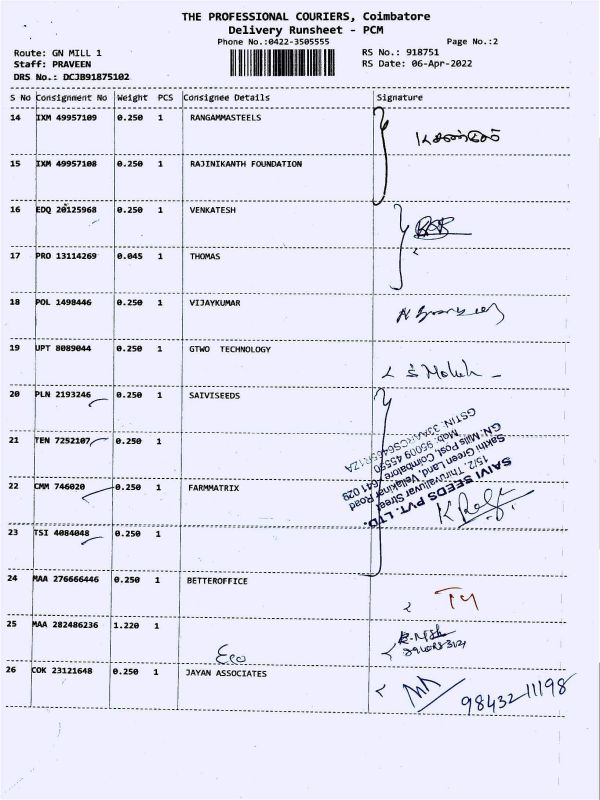 THE PROFESSIONAL COURIERS, Coimbatore
Delivery Runsheet - PCM
Phone No.:0422-3505555 Page No.:2
Route: GN MILL 1 RS No.: 918751
Staff: PRAVEEN RS Date: 06-Apr-2022
DRS No.: DCJB91875102
S No Consignment No Weight PCS Consignee Details Signature
14 IXM 49957109 0.250 1 RANGAMMASTEELS
15 IXM 49957108 0.250 1 RAJINIKANTH FOUNDATION
16 EDQ 20125968 0.250 1 VENKATESH
17 PRO 13114269 0.045 1 THOMAS
18 POL 1498446 0.250 1 VIJAYKUMAR
19 UPT 8089044 0.250 1 GTWO TECHNOLOGY
20 PLN 2193246 0.250 1 SAIVISEEDS
21 TEN 7252107 0.250 1
22 CMM 746020 0.250 1 FARMMATRIX
23 TSI 4084048 0.250 1
SAIVI SEEDS PVT. LTD.
15/2, Thiruvalluvar Street
Sakthi Green Land, Vellakinar Road
GN. Mills Post, Coimbatore - 641 029
Mob: 95009 45550
24 MAA 276666446 0.250 1 BETTEROFFICE
25 MAA 282486236 1.220 1
Eco
26 COK 23121648 0.250 1 JAYAN ASSOCIATES
98432 11198